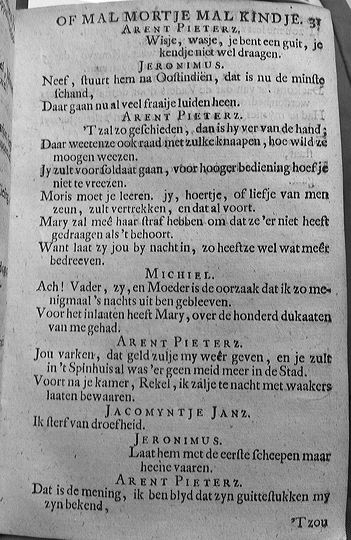 OF MAL MORTJE MAL KINDJE. 31
ARENT PIETERZ.
Wisje, wasje, je bent een guit, je
kendje niet wel draagen.
JERONIMUS.
Neef, stuurt hem na Oostindiën, dat is nu de minste
schand,
Daar gaan nu al veel fraaije luiden heen.
ARENT PIETERZ.
'T zal zo geschieden, dan is hy ver van de hand;
Daar weetenze ook raad met zulke knaapen, hoe wild ze
moogen weezen.
Jy zult voor soldaat gaan, voor hooger bediening hoef je
niet te vreezen.
Moris moet je leeren. jy, hoertje, of liefje van men
zeun, zult vertrekken, en dat al voort.
Mary zal meê haar straf hebben om dat ze 'er niet heeft
gedraagen als 't behoort.
Want laat zy jou by nacht in, zo heeftze wel wat meêr
bedreeven.
MICHIEL.
Ach! Vader, zy, en Moeder is de oorzaak dat ik zo me-
nigmaal 's nachts uit ben gebleeven.
Voor het inlaaten heeft Mary, over de honderd dukaaten
van me gehad.
ARENT PIETERZ.
Jou varken, dat geld zulje my weêr geven, en je zult
in 't Spinhuis al was 'er geen meid meer in de Stad.
Voort na je kamer, Rekel, ik zal je te nacht met waakers
laaten bewaaren.
JACOMYNTJE JANZ.
Ik sterf van droefheid.
JERONIMUS.
Laat hem met de eerste scheepen maar
heene vaaren.
ARENT PIETERZ.
Dat is de mening, ik ben blyd dat zyn guitestukken my
zyn bekend,
'Tzou